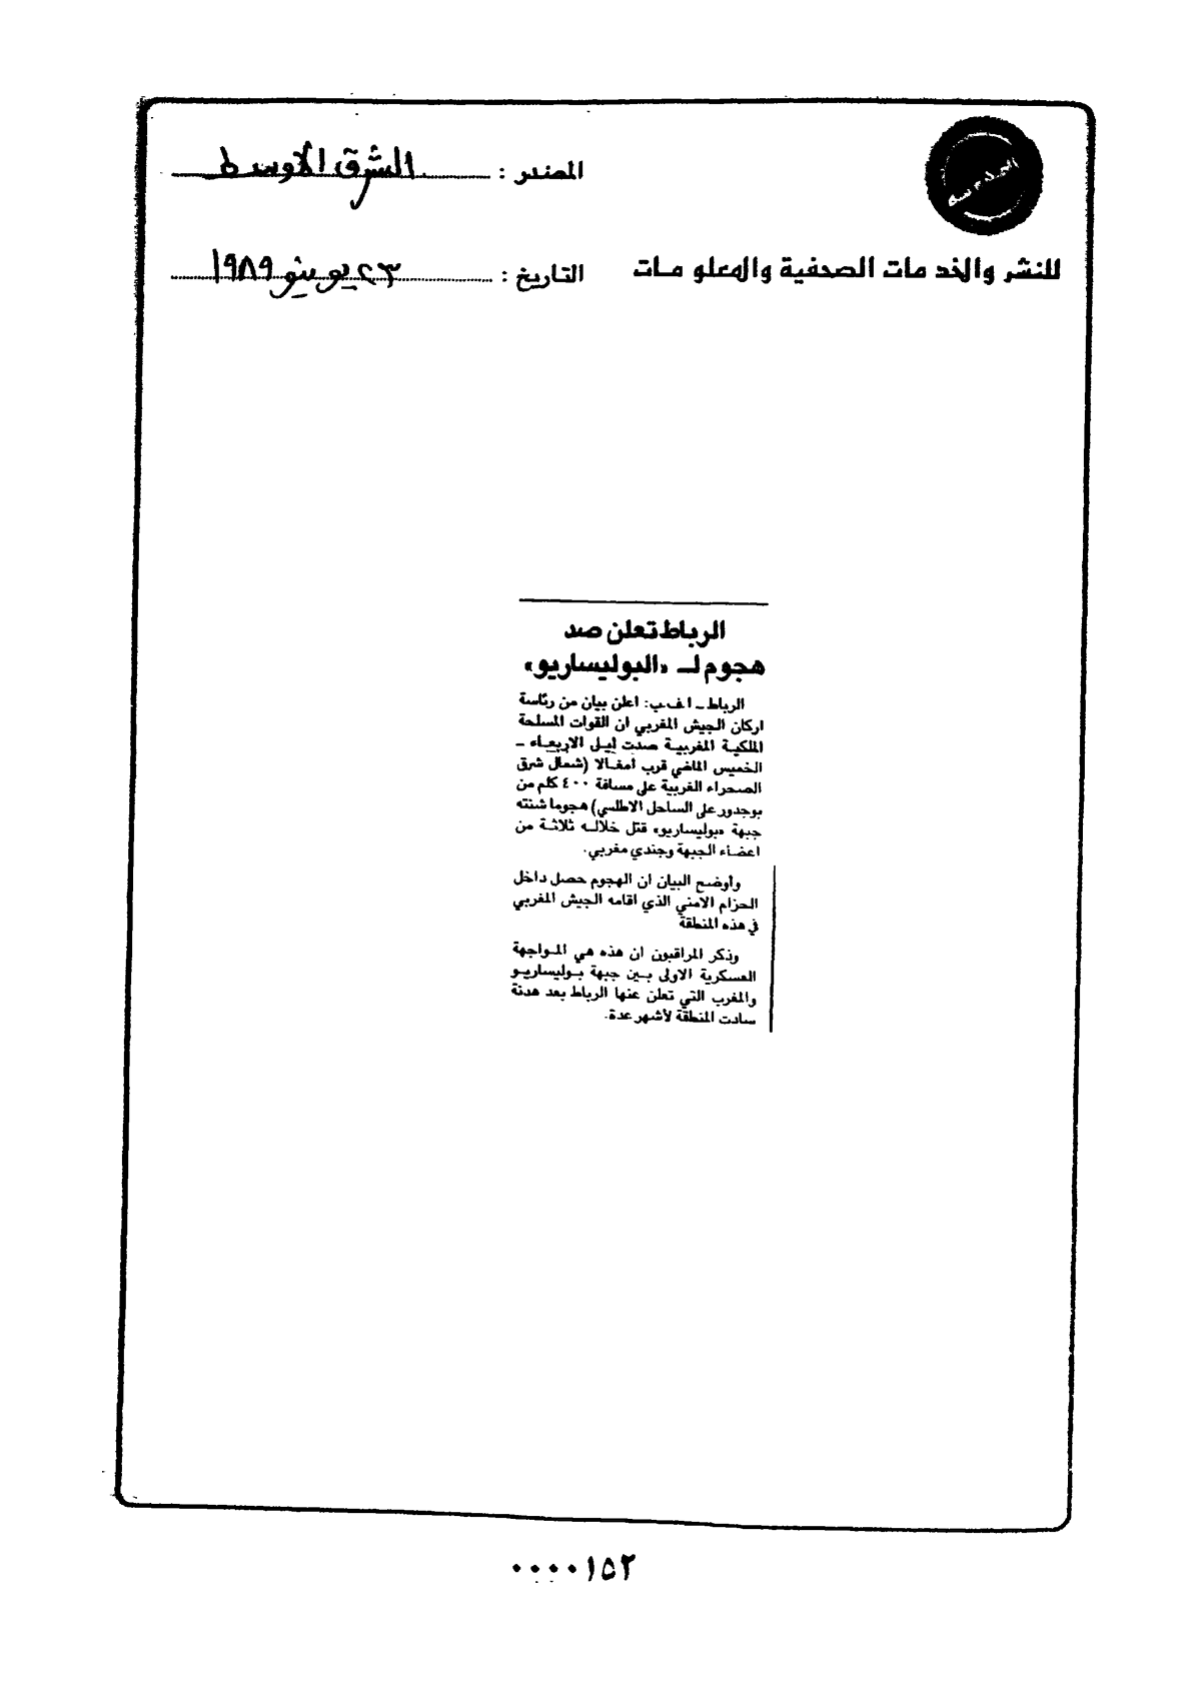 المصدر : الشرق الاوسط
للنشر والخد مات الصحفية والمعلو مات
التاريخ : ٢٣ يونيو ١٩٨٩
الرباط تعلن صد
هجوم لــ «البوليساريو»
الرباط ـ ا.ف.ب: اعلن بيان من رئاسة
اركان الجيش المغربي ان القوات المسلحة
الملكية المغربية صدت ليل الاربعاء ـ
الخميس الماضي قرب امغالا (شمال شرق
الصحراء الغربية على مسافة ٤٠٠ كلم من
بوجدور على الساحل الاطلسي) هجوما شنته
جبهة «بوليساريو» قتل خلاله ثلاثة من
اعضاء الجبهة وجندي مغربي.
وأوضح البيان ان الهجوم حصل داخل
الحزام الامني الذي اقامه الجيش المغربي
في هذه المنطقة
وذكر المراقبون ان هذه هي المواجهة
العسكرية الاولى بين جبهة بوليساريو
والمغرب التي تعلن عنها الرباط بعد هدنة
سادت المنطقة لأشهر عدة.
٠٠٠٠١٥٢